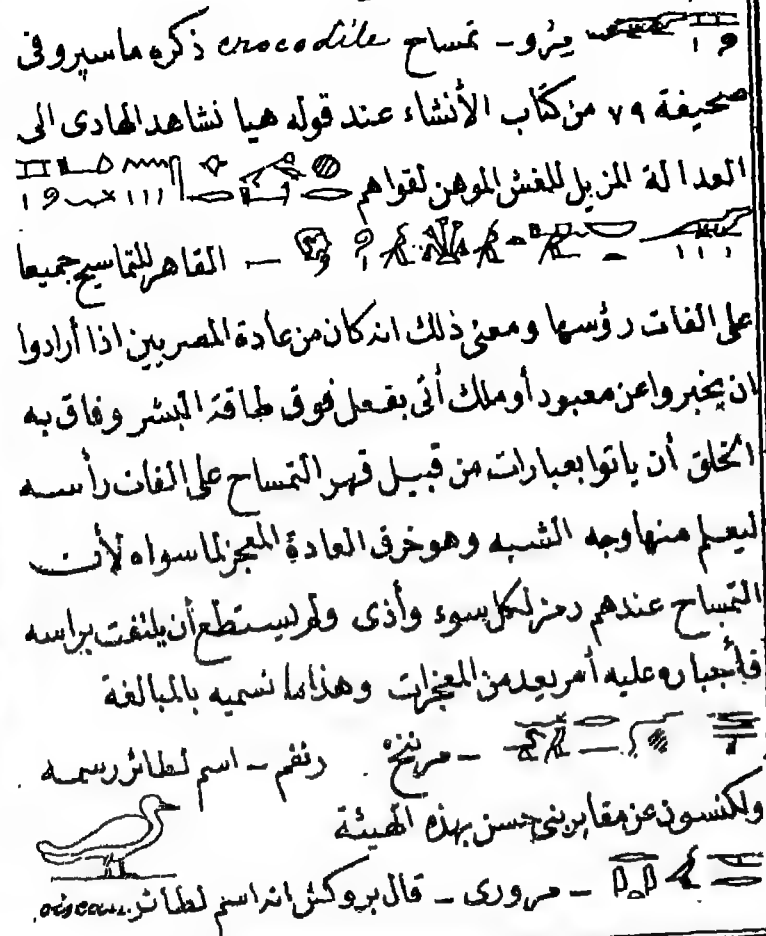 مِزُو - تمساح crocodile ذكره ماسپرو فى
صحيفة ٧٩ من كتاب الأنشاء عند قوله هيا نشاهد الهادى الى
العدالة المزيل للغش الموهن لقواهم
— القاهر للتماسيح جميعا
على الفات رؤسها ومعنى ذلك انه كان من عادة المصريين اذا أرادوا
ان يخبروا عن معبود أو ملك أتى بفعل فوق طاقة البشر وفاق به
الخلق أن ياتوا بعبارات من قبيل قهر التمساح على الفات رأسه
ليعلم منها وجه الشبه وهو خرق العادة المعجز لما سواه لأن
التمساح عندهم رمز لكل سوء وأذى ولم يستطع أن يلتفت براسه
فأجباره عليه أمر يعد من المعجزات وهذا ما نسميه بالمبالغة
- اسم لطائر رسمه
ولكنسون عن مقابر بنى حسن بهذه الهيئة
- مرورى - قال بروكش انه اسم لطائر oiseau.